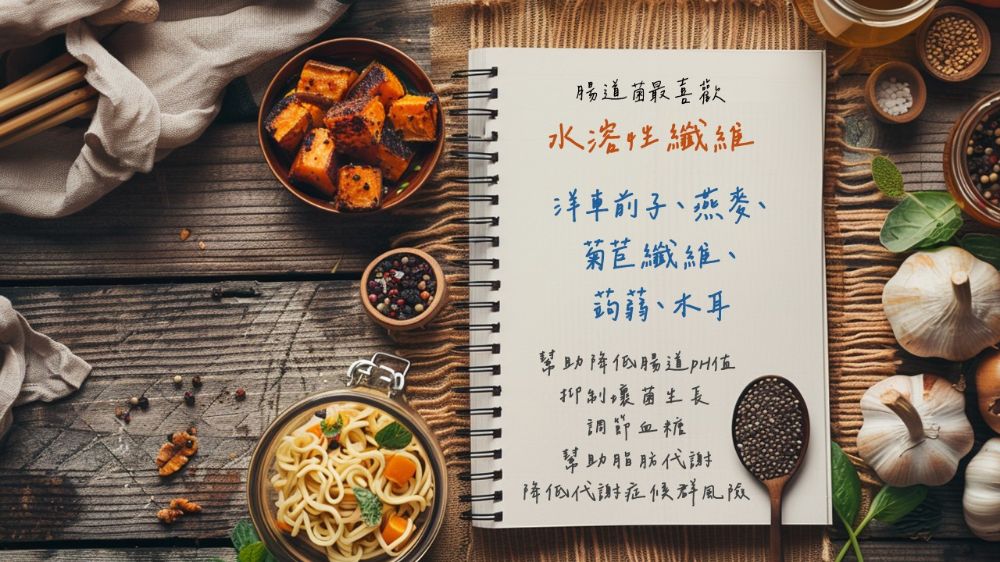 腸道菌最喜歡
水溶性纖維
洋車前子、燕麥、
菊苣纖維、
蒟蒻、木耳
幫助降低腸道pH值
抑制壞菌生長
調節血糖
幫助脂肪代謝
降低代謝症候群風險